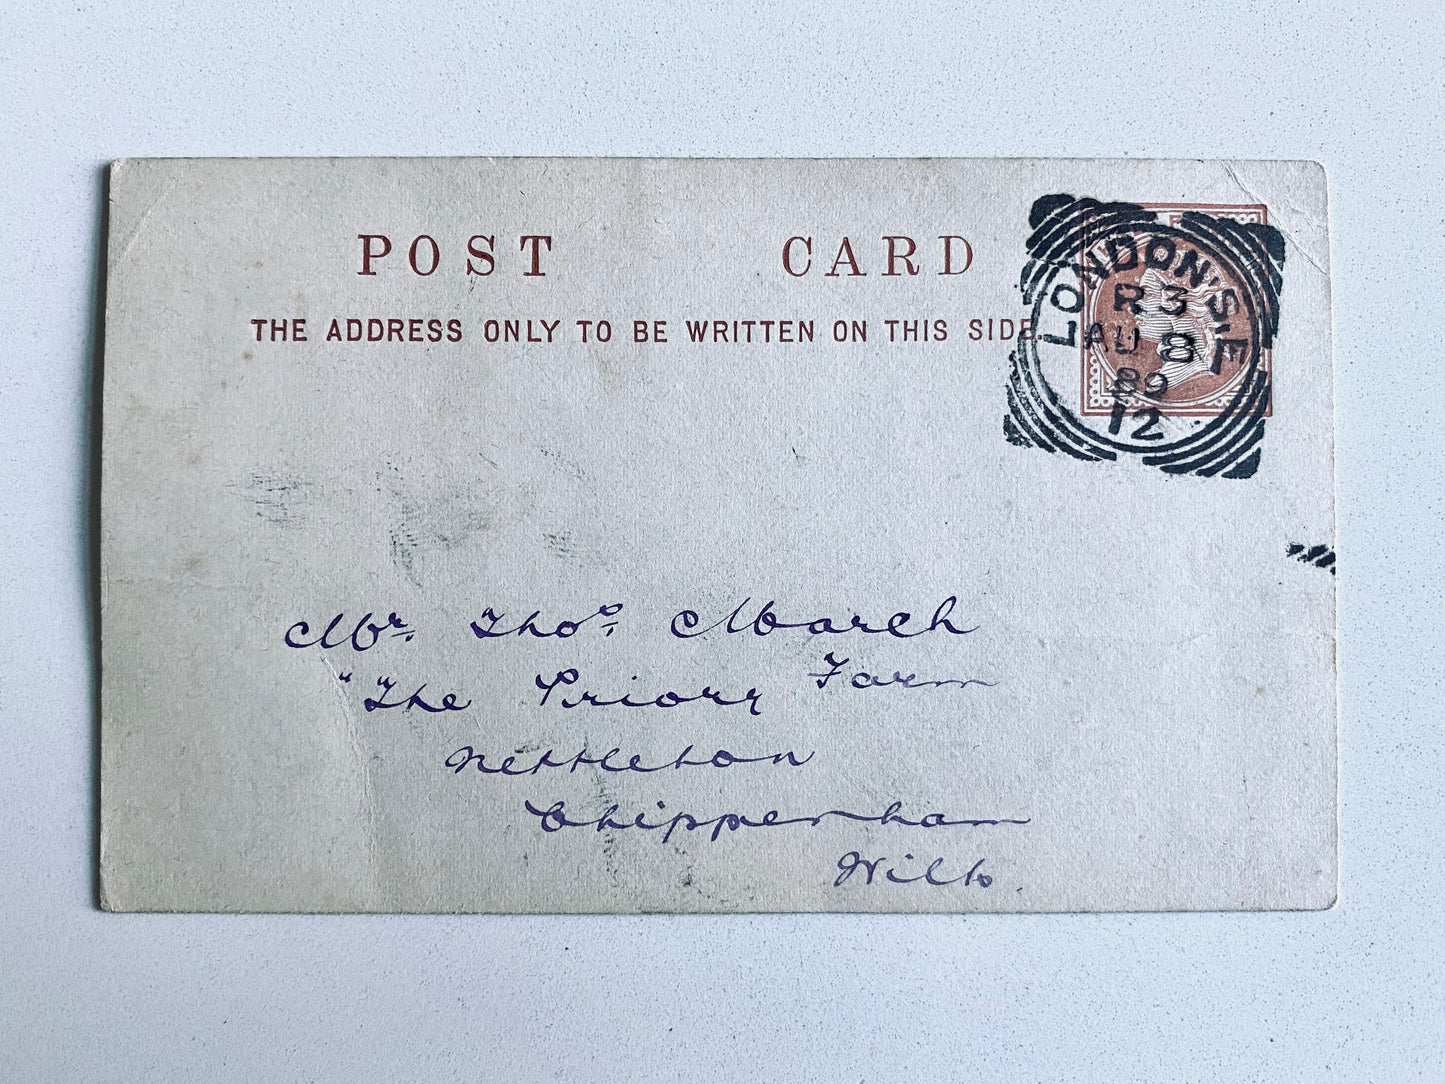 POST CARD
THE ADDRESS ONLY TO BE WRITTEN ON THIS SIDE.
LONDON.S.E
R3
AU 8
89
12
Mr. Thos. March
"The Priory Farm
Nettleton
Chippenham
Wilts